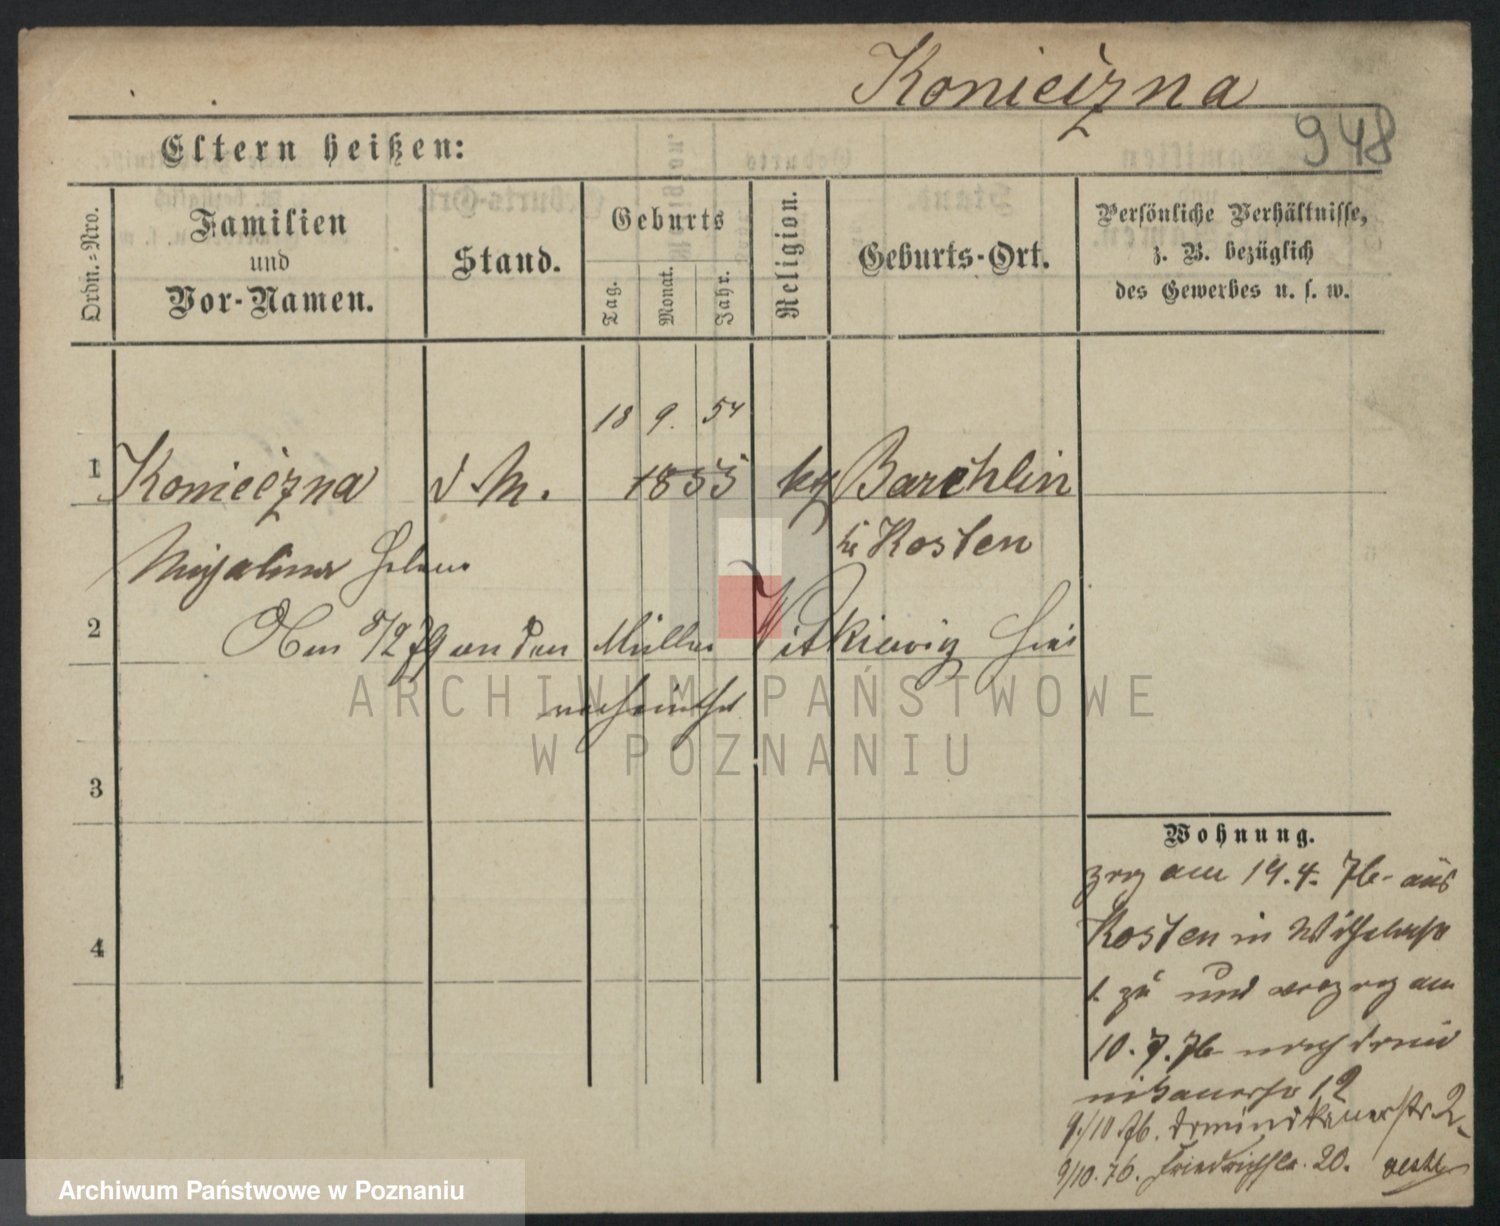 Konieczna
948
Eltern heißen:
Ordn.-Nro.
Familien
und
Vor-Namen.
Stand.
Geburts
Tag.
Monat.
Jahr.
Religion.
Geburts-Ort.
Persönliche Verhältnisse,
z. B. bezüglich
des Gewerbes u. s. w.
18 9. 54
1 Konieczna d. M. 1855 kg Barchlin
Kosten
Helene
2 Oben 8/2 79 an den Müller Witkiewiz hier
verheirathet
3
4
Wohnung.
zog am 19. 4. 76 aus
Kosten in Wilhelmstr
1 zu und verzog am
10. 7. 76 nach Domi
nikanerstr 12
9/10 76. Dominikanerstr 2
9/10. 76. Friedrichstr. 20.
ARCHIWUM PAŃSTWOWE
W POZNANIU
Archiwum Państwowe w Poznaniu